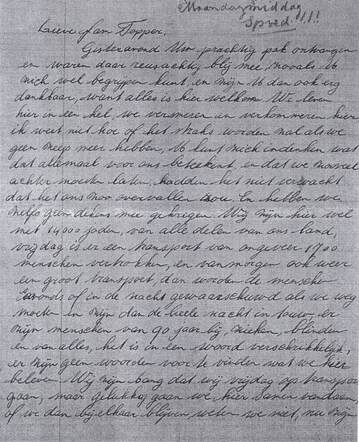 Maandagmiddag
Spoed!!!!
Lieve Fam Topper,
Gisteravond Uw prachtig pak ontvangen
en waren daar reusachtig blij mee, zooals U
zich wel begrijpen kunt en zijn U dan ook erg
dankbaar, want alles is hier welkom. We leven
hier in een hel, we vermeseren en verkommeren hier
ik weet niet hoe of het straks worden zal als we
geen meep meer hebben, U kunt zich indenken wat
dat allemaal voor ons beteekent, en dat we zooveel
achter moesten laten, hadden het niet verwacht
dat het ons zoo overvallen zou. En hebben we
geen dekens mee gekregen. Wij zijn hier wel
met 14000 joden, van alle delen van ons land,
vrijdag is er een transport van ongeveer 1700
menschen vertrokken, en vanmorgen ook weer
een groot transport, dan worden de menschen
's avonds of in de nacht gewaarschuwd als ze weg
moeten en zijn dan de heele nacht in touw, er
zijn menschen van 90 jaar bij, zieken, blinden
en van alles, het is in een woord verschrikkelijk,
er zijn geen woorden voor te vinden wat we hier
beleven. Wij zijn bang dat wij vrijdag op transport
gaan, maar gelukkig gaan we hier samen vandaan,
of we dan bijelkaar blijven weten we niet, nu zijn